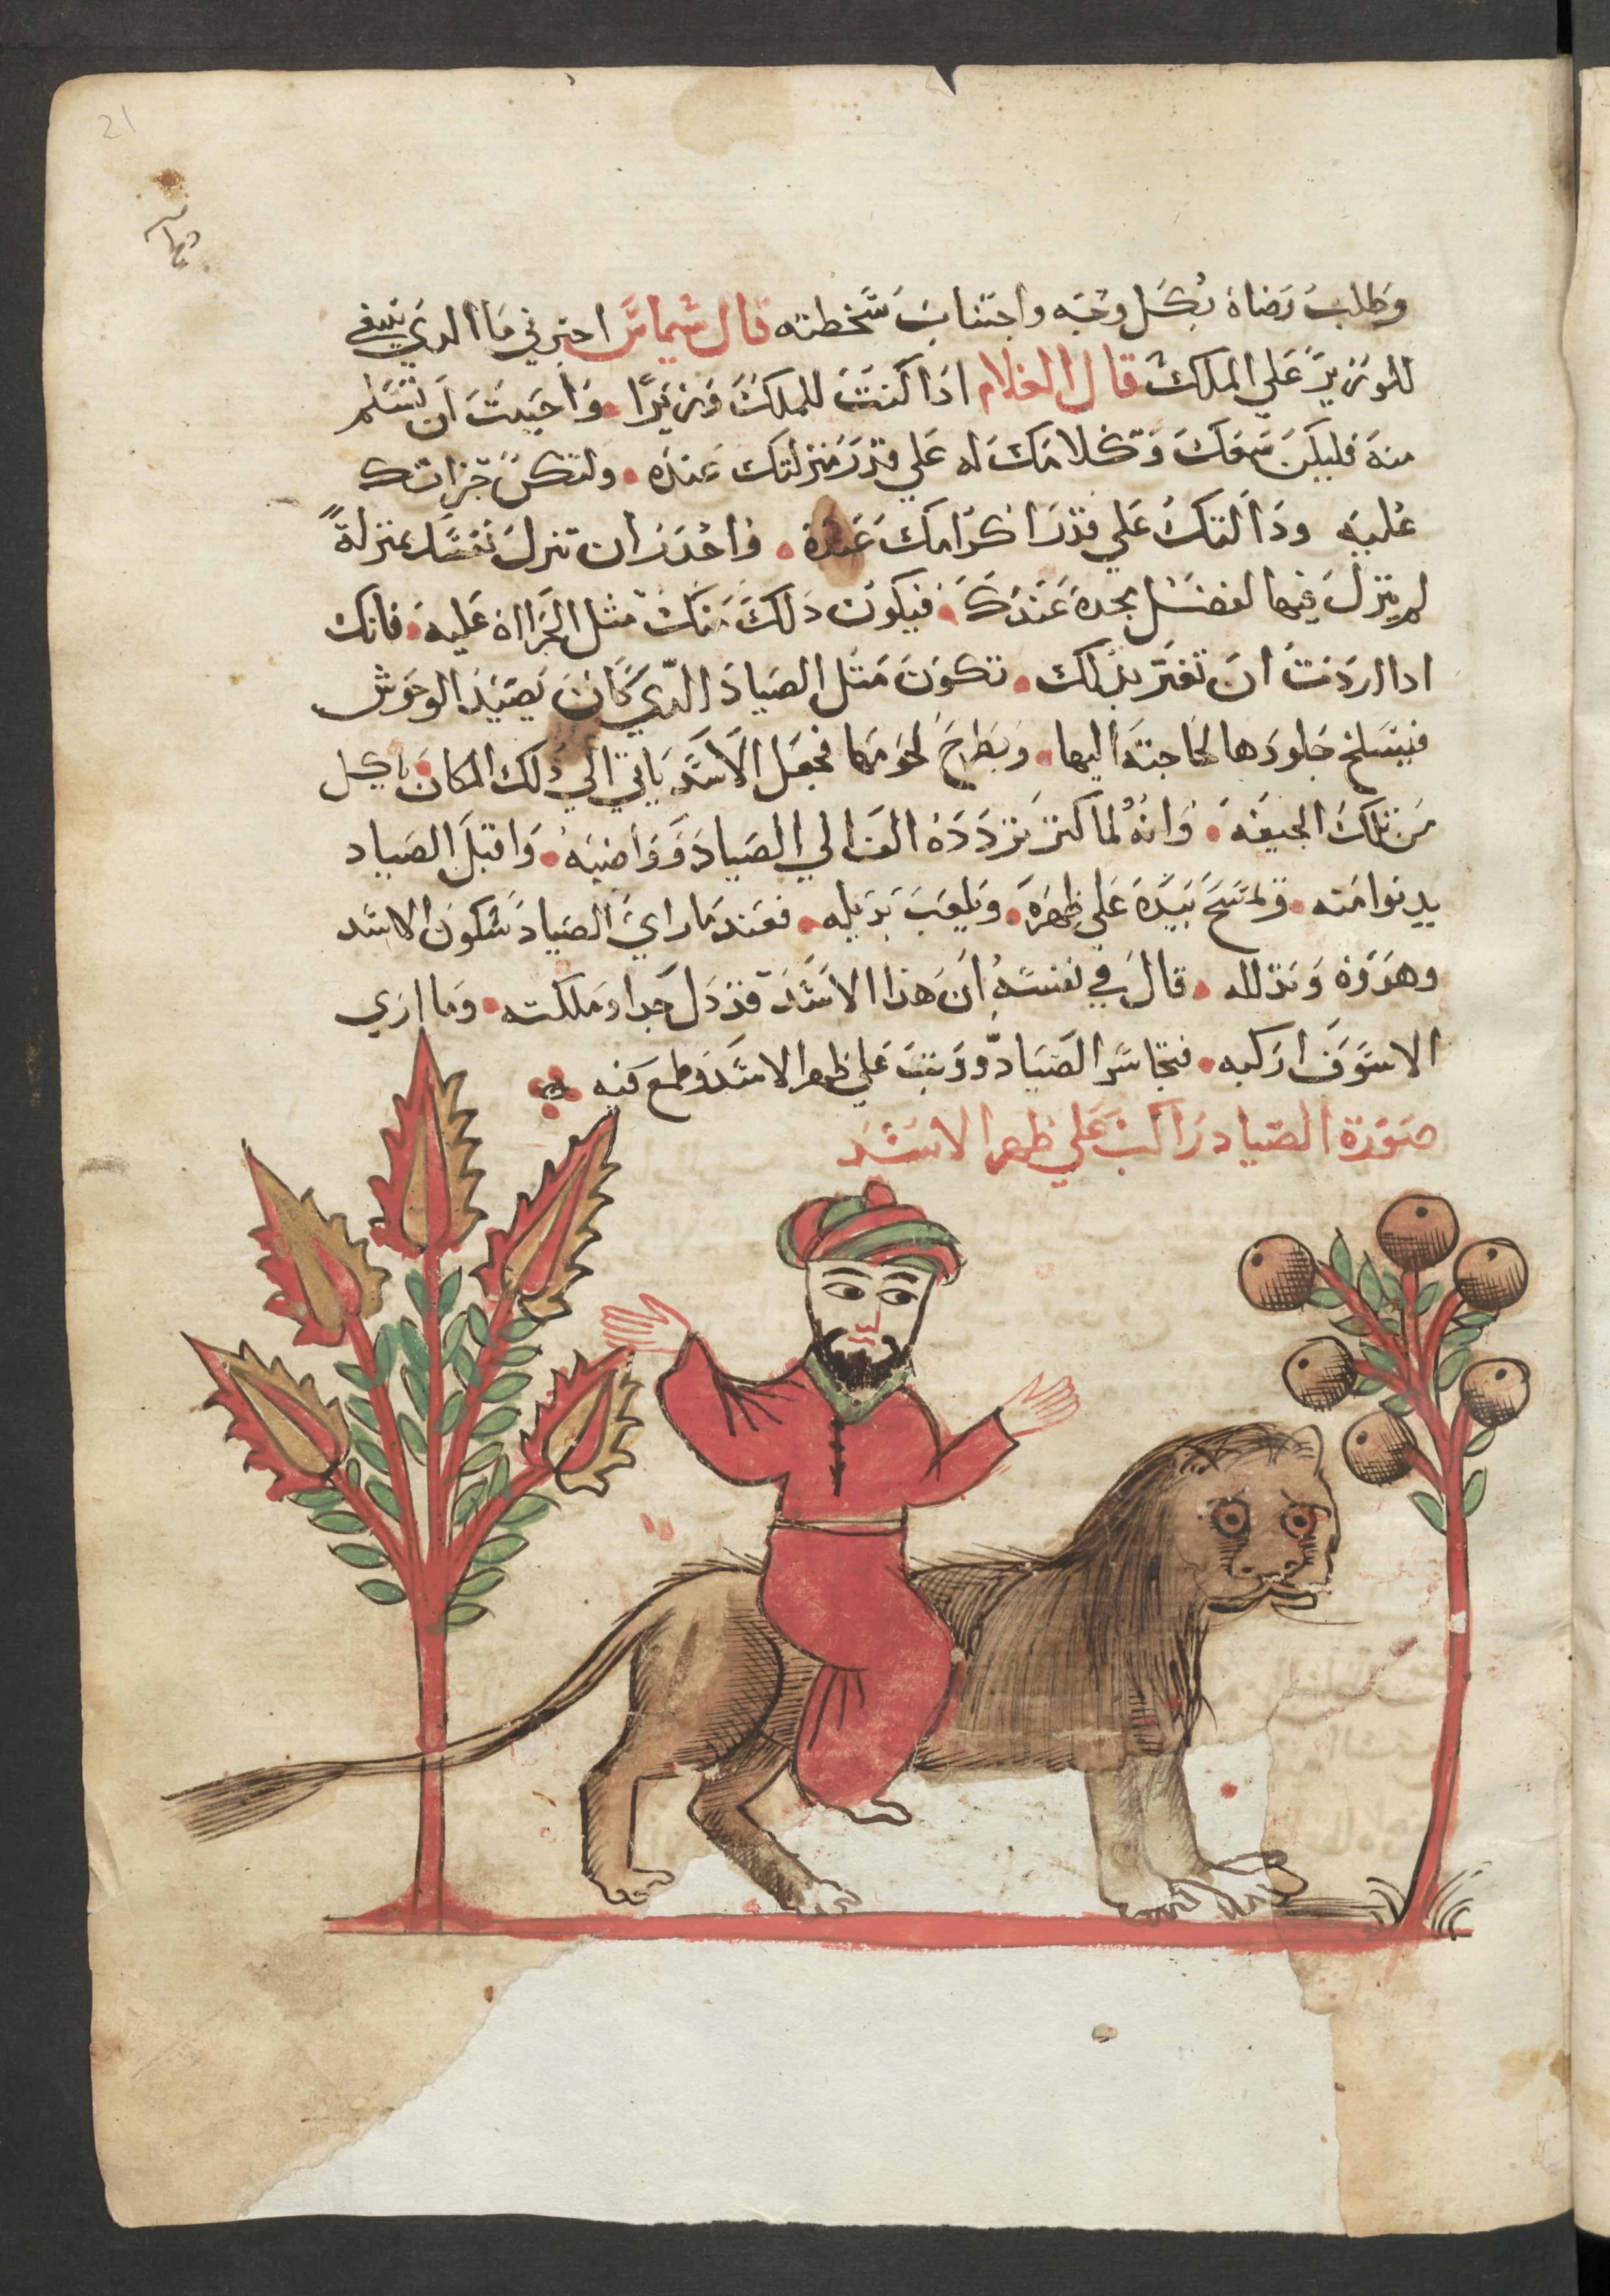 21
وطلب رضاه بكل وجه واجتناب سخطته قال شيماس اخبرني ما الدي ينبغي
للوزير علي الملك قال الغلام ادا كنت للملك وزيرا وأحببت ان تسلم
منه فليكن سمعك وكلامك له علي قدر منزلتك عنده ولتكن جزاتك
عليه ودالتك علي قدر اكرامك عنده واحدر ان تنزل نفسك بمنزلة
لم ينزلك فيها لفضل يجده عندك فيكون دلك منك مثل الجرااة عليه فانك
ادا اردت ان تغتر بدلك تكون مثل الصياد الدي كان يصيد الوحوش
فيسلخ جلودها لحاجته اليها ويطرح لحومها فجعل الاسد ياتي الي دلك المكان ياكل
من تلك الجيفة وانه لما كثر تردده الف الي الصياد وواضبه واقبل الصياد
يدنوا منه ويمسح بيده علي ظهره ويلعب بديله فعند ما راي الصياد سكون الاسد
وهدوه وتدلله قال في نفسه ان هدا الاسد قد دل جدا وملكته وما اري
الا سوف اركبه فتجاسر الصياد ووثب علي ظهر الاسد وطمع فيه
صورة الصياد راكب علي ظهر الاسد